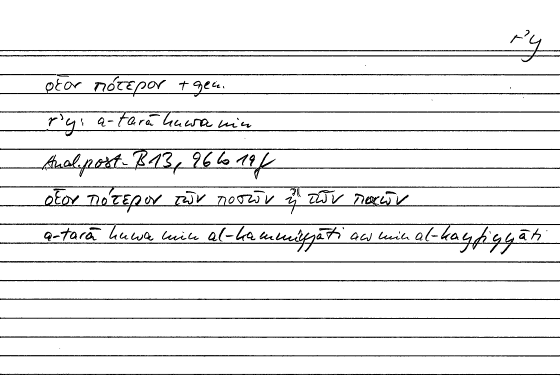 rʾy
οἷον πότερον + gen.
rʾy: a-tarā huwa min
Anal.post. B 13, 96 b 19 f
οἷον πότερον τῶν ποσῶν ἢ τῶν ποιῶν
a-tarā huwa min al-kammīyyāti aw min al-kayfiyyāti